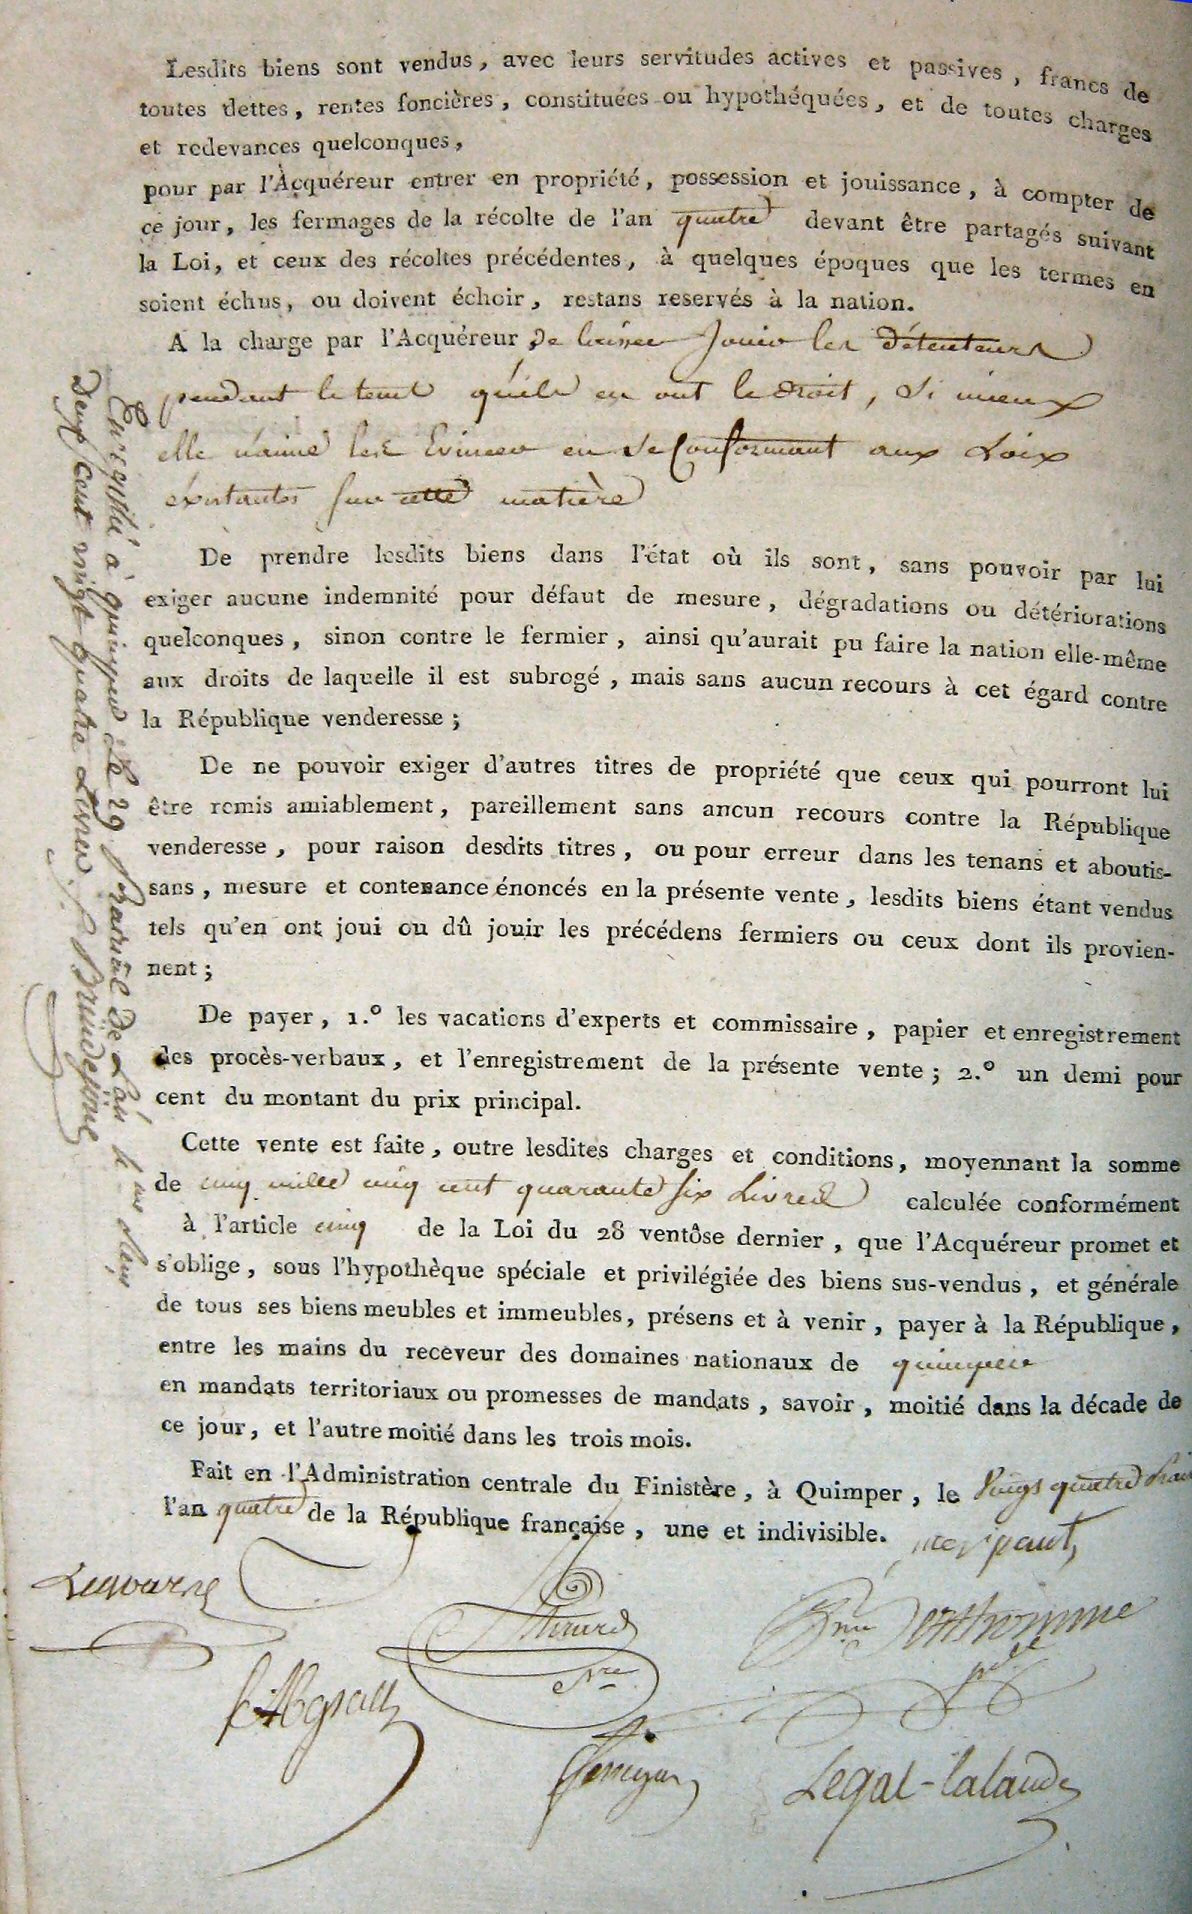 Lesdits biens sont vendus, avec leurs servitudes actives et passives, francs de
toutes dettes, rentes foncières, constituées ou hypothéquées, et de toutes charges
et redevances quelconques,
pour par l'Acquéreur entrer en propriété, possession et jouissance, à compter de
ce jour, les fermages de la récolte de l'an quatre devant être partagés suivant
la Loi, et ceux des récoltes précédentes, à quelques époques que les termes en
soient échus, ou doivent échoir, restans reservés à la nation.
A la charge par l'Acquéreur de laisser Jouir les détenteurs
pendant le tems qu'ils en ont le droit, si mieux
elle n'aime les Evincer en se Conformant aux Loix
existantes sur cette matière
De prendre lesdits biens dans l'état où ils sont, sans pouvoir par lui
exiger aucune indemnité pour défaut de mesure, dégradations ou détériorations
quelconques, sinon contre le fermier, ainsi qu'aurait pu faire la nation elle-même
aux droits de laquelle il est subrogé, mais sans aucun recours à cet égard contre
la République venderesse;
De ne pouvoir exiger d'autres titres de propriété que ceux qui pourront lui
être remis amiablement, pareillement sans ancun recours contre la République
venderesse, pour raison desdits titres, ou pour erreur dans les tenans et aboutis-
sans, mesure et contenance énoncés en la présente vente, lesdits biens étant vendus
tels qu'en ont joui ou dû jouir les précédens fermiers ou ceux dont ils provien-
nent;
De payer, 1.º les vacations d'experts et commissaire, papier et enregistrement
des procès-verbaux, et l'enregistrement de la présente vente; 2.º un demi pour
cent du montant du prix principal.
Cette vente est faite, outre lesdites charges et conditions, moyennant la somme
de cinq mille cinq cent quarante six Livres calculée conformément
à l'article cinq de la Loi du 28 ventôse dernier, que l'Acquéreur promet et
s'oblige, sous l'hypothèque spéciale et privilégiée des biens sus-vendus, et générale
de tous ses biens meubles et immeubles, présens et à venir, payer à la République,
entre les mains du receveur des domaines nationaux de quimper
en mandats territoriaux ou promesses de mandats, savoir, moitié dans la décade de
ce jour, et l'autre moitié dans les trois mois.
Fait en l'Administration centrale du Finistère, à Quimper, le Vingt quatre
l'an quatre de la République française, une et indivisible.
Legal-lalande
Enregistré à quimper Le 29 prairial de L'an
Deux cent vingt quatre Livres